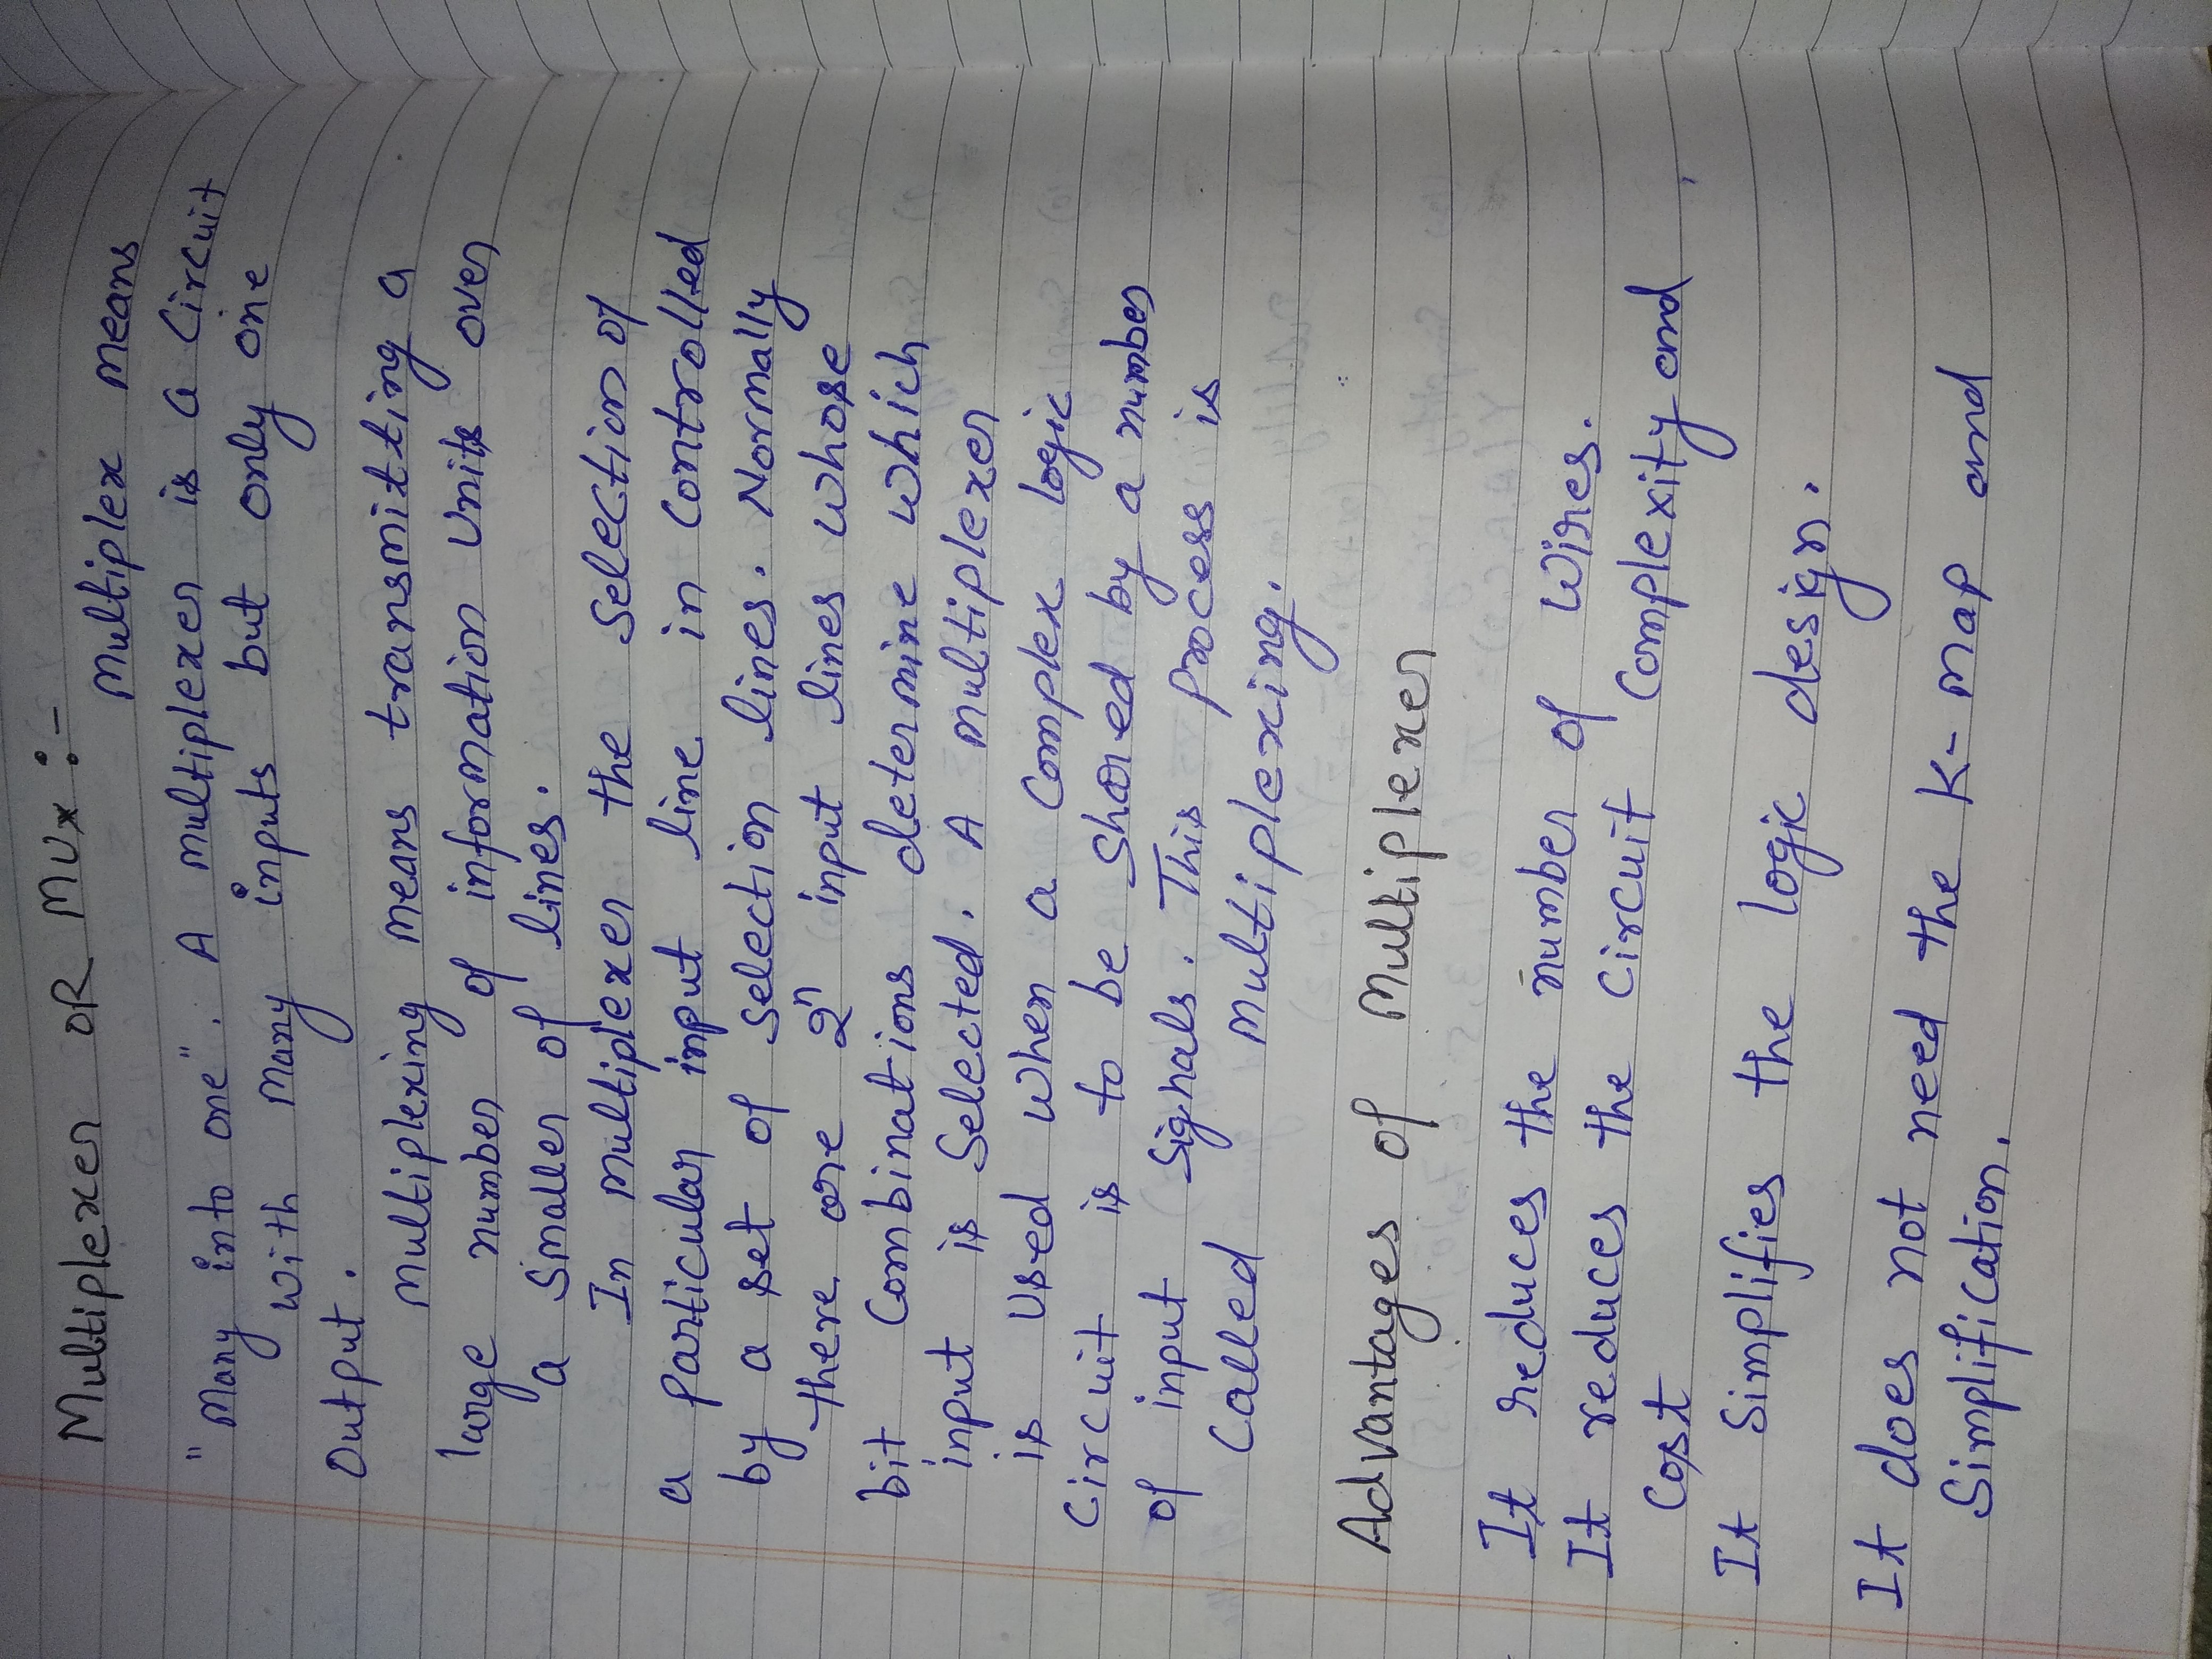 Multiplexer OR Mux :-
Multiplex means
"Many into one". A multiplexer is a circuit
with many inputs but only one
output.
Multiplexing means transmitting a
large number of information units over
a smaller of lines.
In multiplexer the selection of
a particular input line in controlled
by a set of selection lines. Normally
there are 2ⁿ input lines whose
bit combinations determine which
input is selected. A multiplexer
is used when a complex logic
circuit is to be shared by a number
of input signals. This process is
called multiplexing.
Advantages of Multiplexer
It reduces the number of wires.
It reduces the circuit complexity and
cost
It simplifies the logic design.
It does not need the K-map and
simplification.